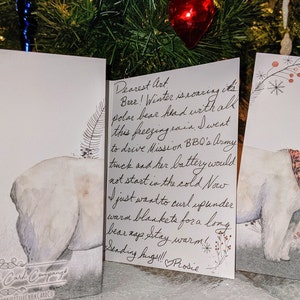 Dearest Art
Brrr! Winter is roaring its
polar bear head with all
this freezing rain. I went
to drive Mission BBQ's Army
truck and her battery would
not start in the cold. Now
I just want to curl up under
warm blankets for a long
bear nap. Stay warm!
Sending hugs!!!
♡ Rosie